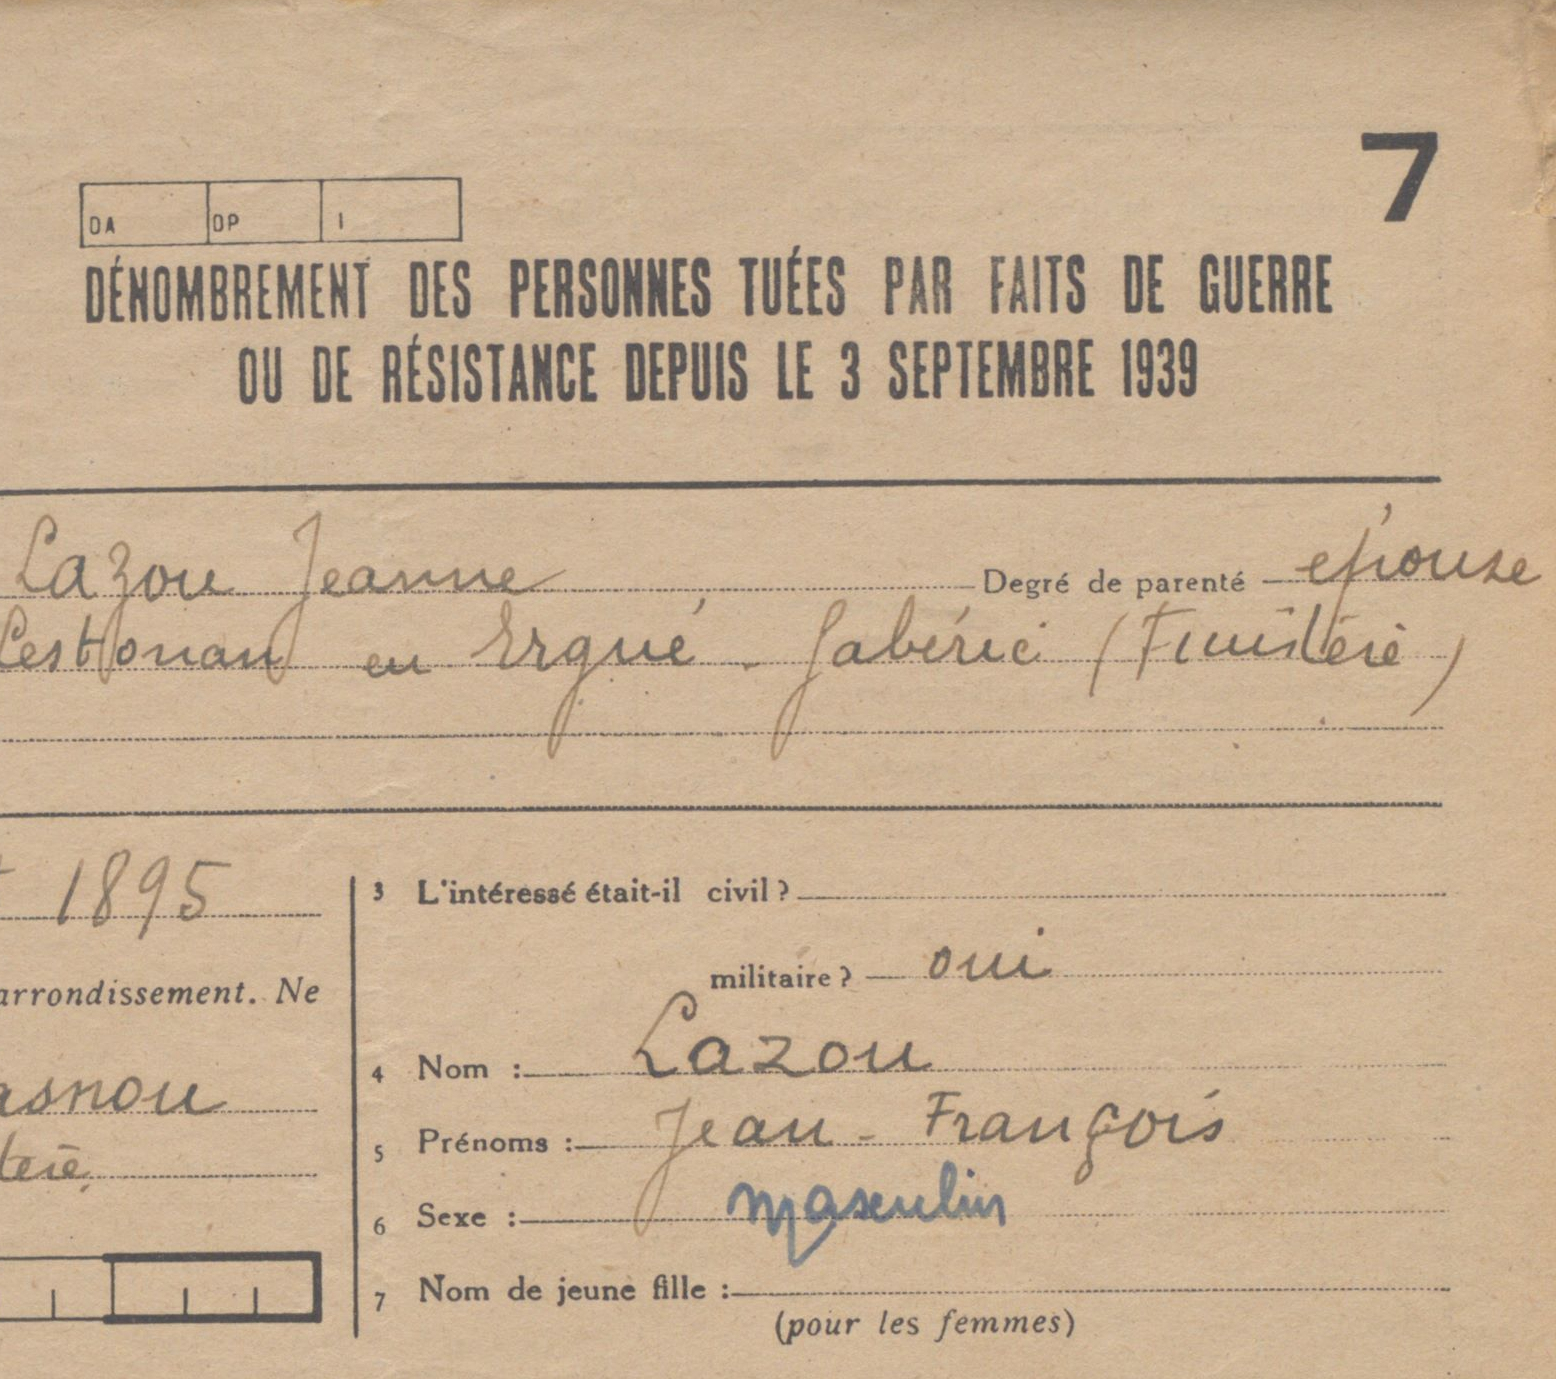 7
DA DP I
DÉNOMBREMENT DES PERSONNES TUÉES PAR FAITS DE GUERRE
OU DE RÉSISTANCE DEPUIS LE 3 SEPTEMBRE 1939
Lazou Jeanne Degré de parenté épouse
Lestonan en Ergué-Gabéric (Finistère)
1895
arrondissement. Ne
asnou
tère
3 L'intéressé était-il civil ?
militaire ? oui
4 Nom : Lazou
5 Prénoms : Jean-François
6 Sexe : masculin
7 Nom de jeune fille :
(pour les femmes)